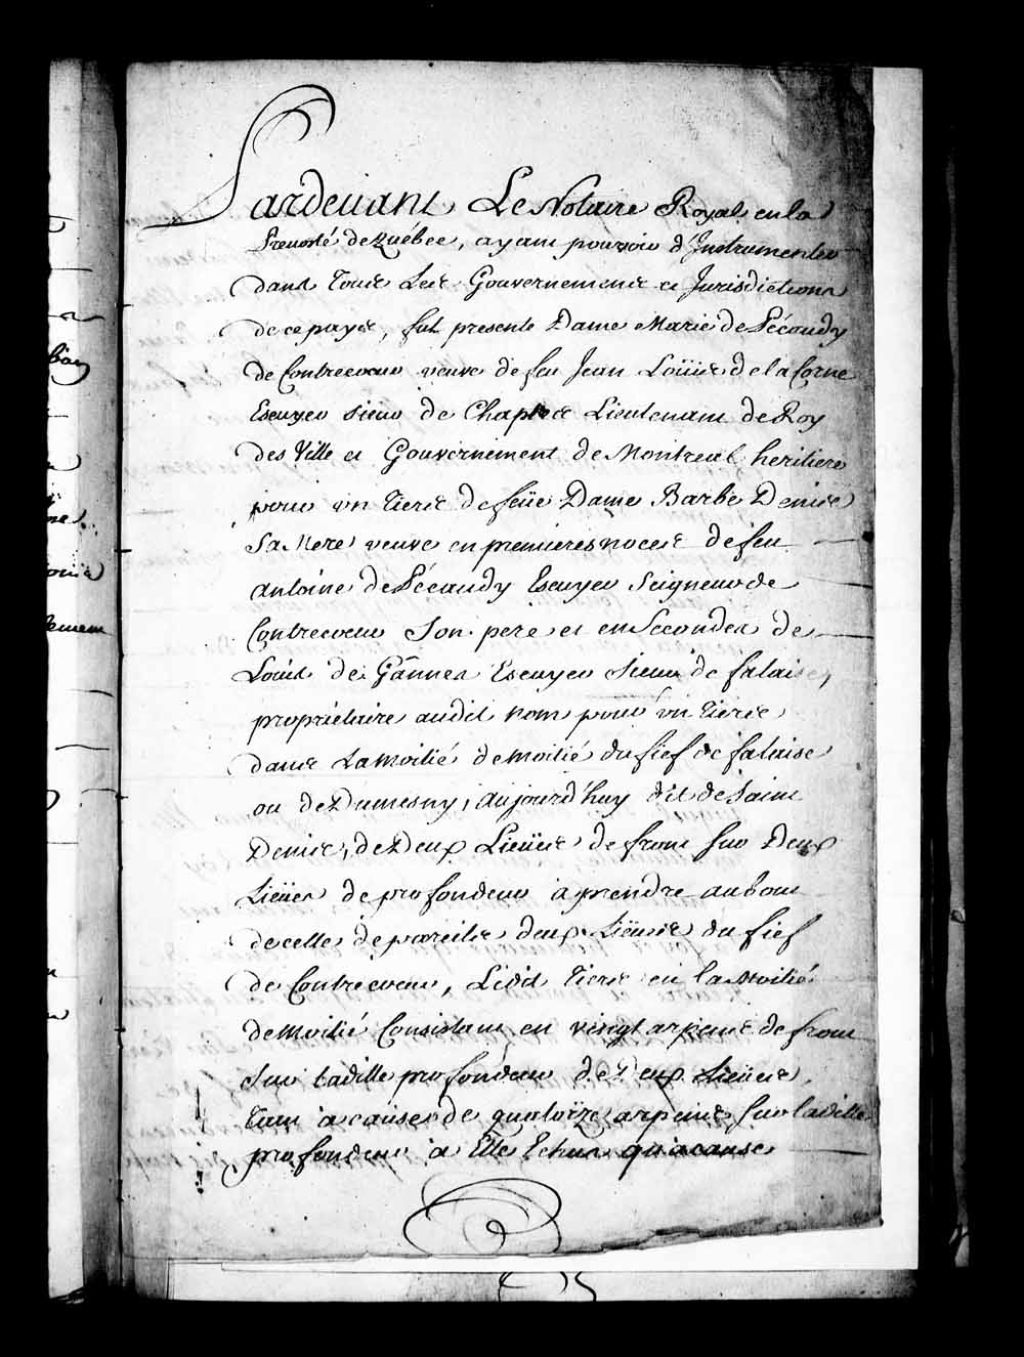 Pardevant Le Notaire Royal en la
Prevosté de Québec, ayant pouvoir d'Instrumenter
dans tous Les Gouvernemens et Jurisdictions
de ce payis, fut presente Dame Marie de Pécaudy
de Contrecoeur veuve de feu Jean Loüis de la Corne
Escuyer sieur de Chaptes Lieutenant de Roy
des Ville et Gouvernement de Montreal heritiere
pour un tiers de feüe Dame Barbe Denis
Sa Mere veuve en premieres noces de feu
Antoine de Pécaudy Escuyer Seigneur de
Contrecoeur Son pere et en Secondes de
Loüis de Gannes Escuyer Sieur de falaise,
propriétaire audit nom pour un tiers
dans La moitié de moitié du fief de falaise
ou de Dumesny, aujourd'huy dit de Saint
Denis, de Deux Lieües de front sur Deux
Lieües de profondeur à prendre au bout
de celles de pareilles deux Lieües du fief
de Contrecoeur, Ledit tiers en la Moitié
de moitié Consistant en vingt arpens de front
Sur ladite profondeur de Deux Lieües,
tant à cause de quatorze arpens sur ladite
profondeur à Elle Echus qu'à cause